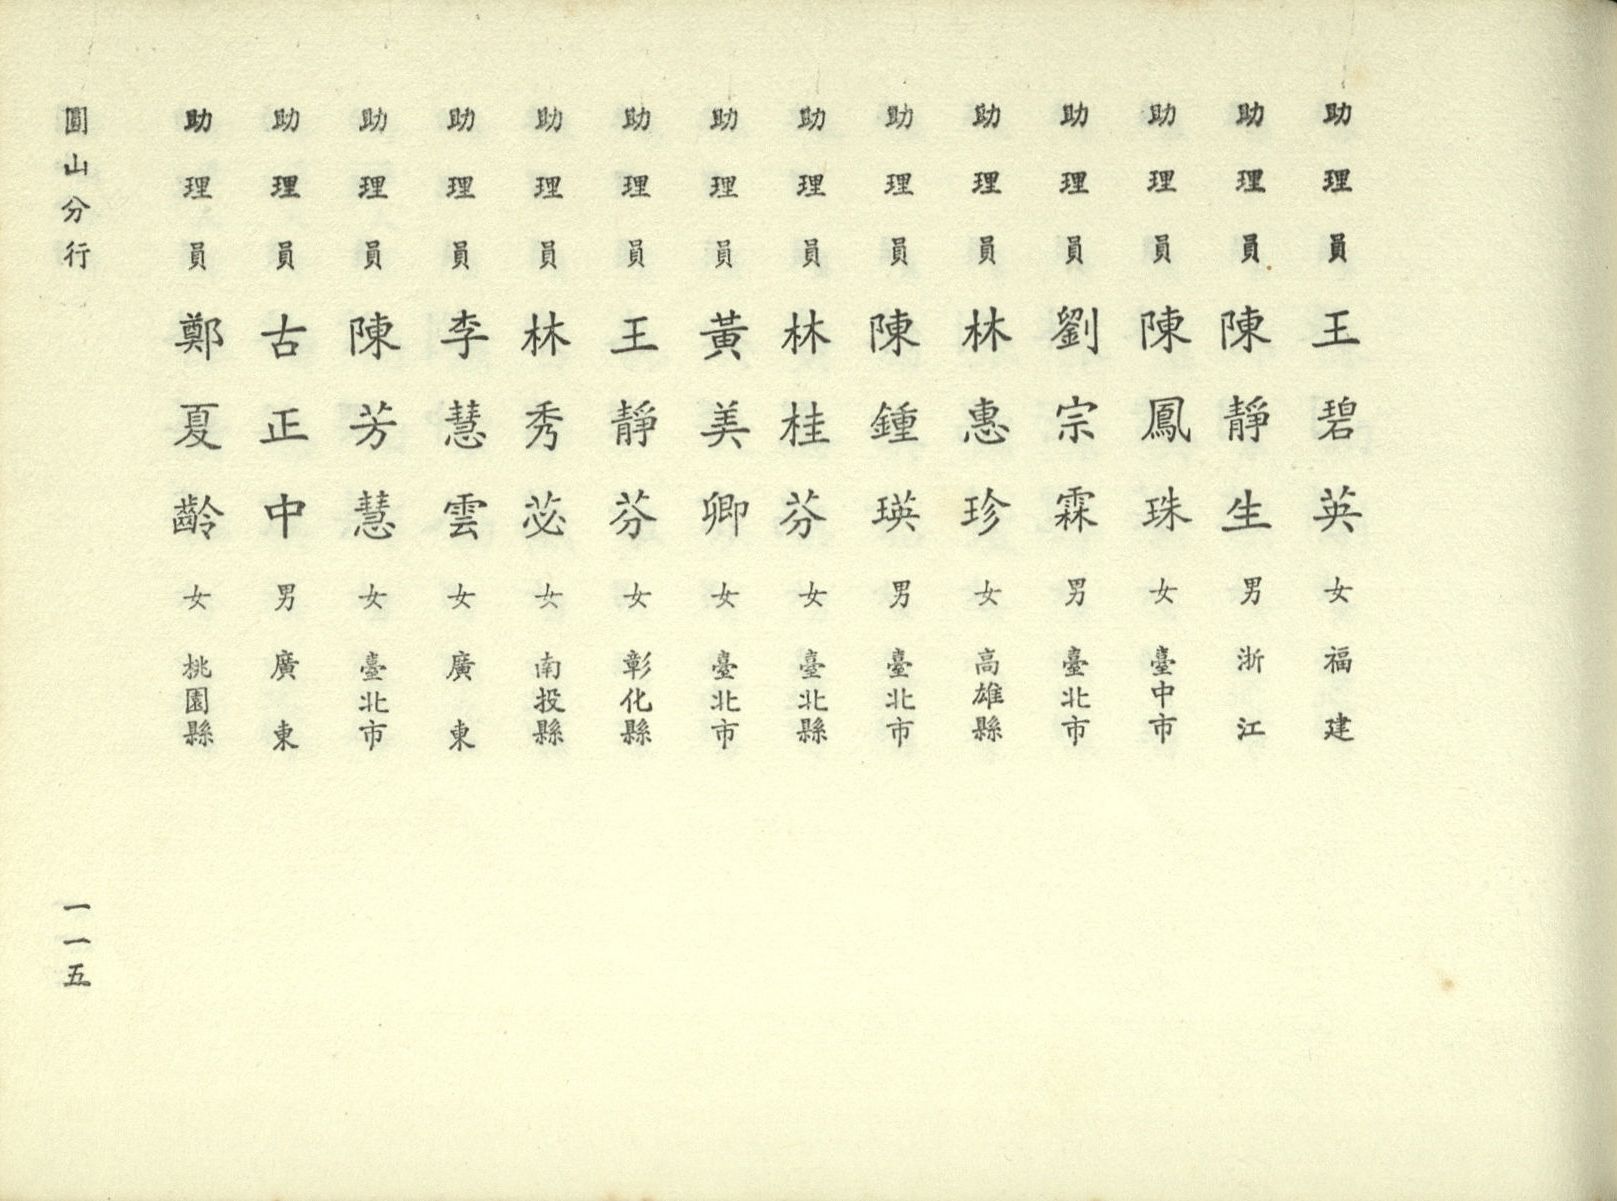 助理員 王碧英 女 福建
助理員 陳靜生 男 浙江
助理員 陳鳳珠 女 臺中市
助理員 劉宗霖 男 臺北市
助理員 林惠珍 女 高雄縣
助理員 陳鍾瑛 男 臺北市
助理員 林桂芬 女 臺北縣
助理員 黃美卿 女 臺北市
助理員 王靜芬 女 彰化縣
助理員 林秀苾 女 南投縣
助理員 李慧雲 女 廣東
助理員 陳芳慧 女 臺北市
助理員 古正中 男 廣東
助理員 鄭夏齡 女 桃園縣
圓山分行
一一五